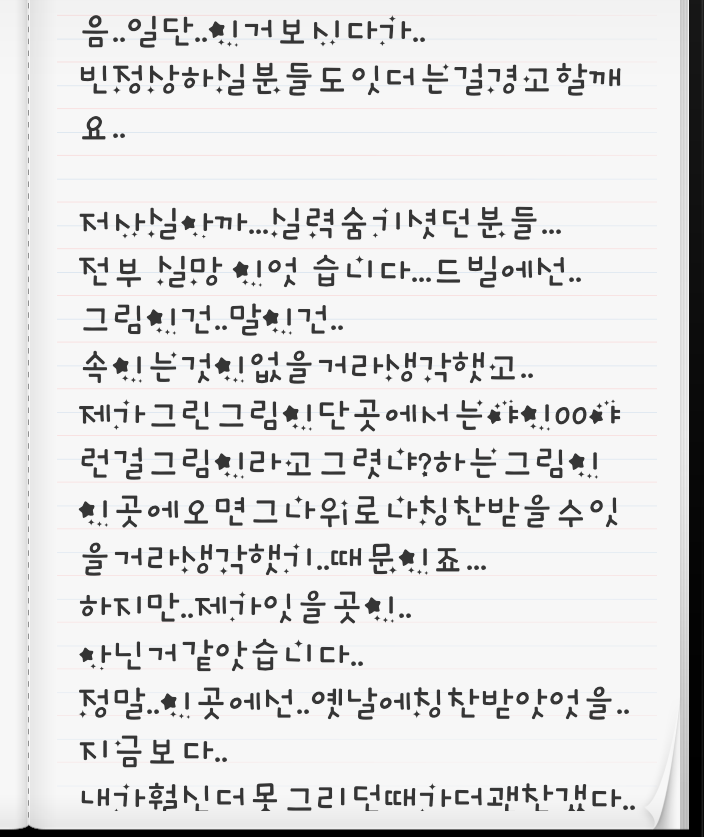 음..일단..이거보시다가..
빈정상하실분들도잇더는걸경고할깨
요..
저사실아까...실력숨기셧던분들...
전부 실망 이엇 습니다...드빌에선..
그림이건..말이건..
속이는것이없을거라생각햇고..
제가그린그림이단곳에서는야이00야
런걸그림이라고그렷냐?하는그림이
이곳에오면그나위로나칭찬받을수잇
을거라생각햇기..때문이죠...
하지만..제가잇을곳이..
아닌거같앗습니다..
정말..이곳에선..옛날에칭찬받앗엇을..
지금보다..
내가훨신더못그리던때가더괜찬갯다..